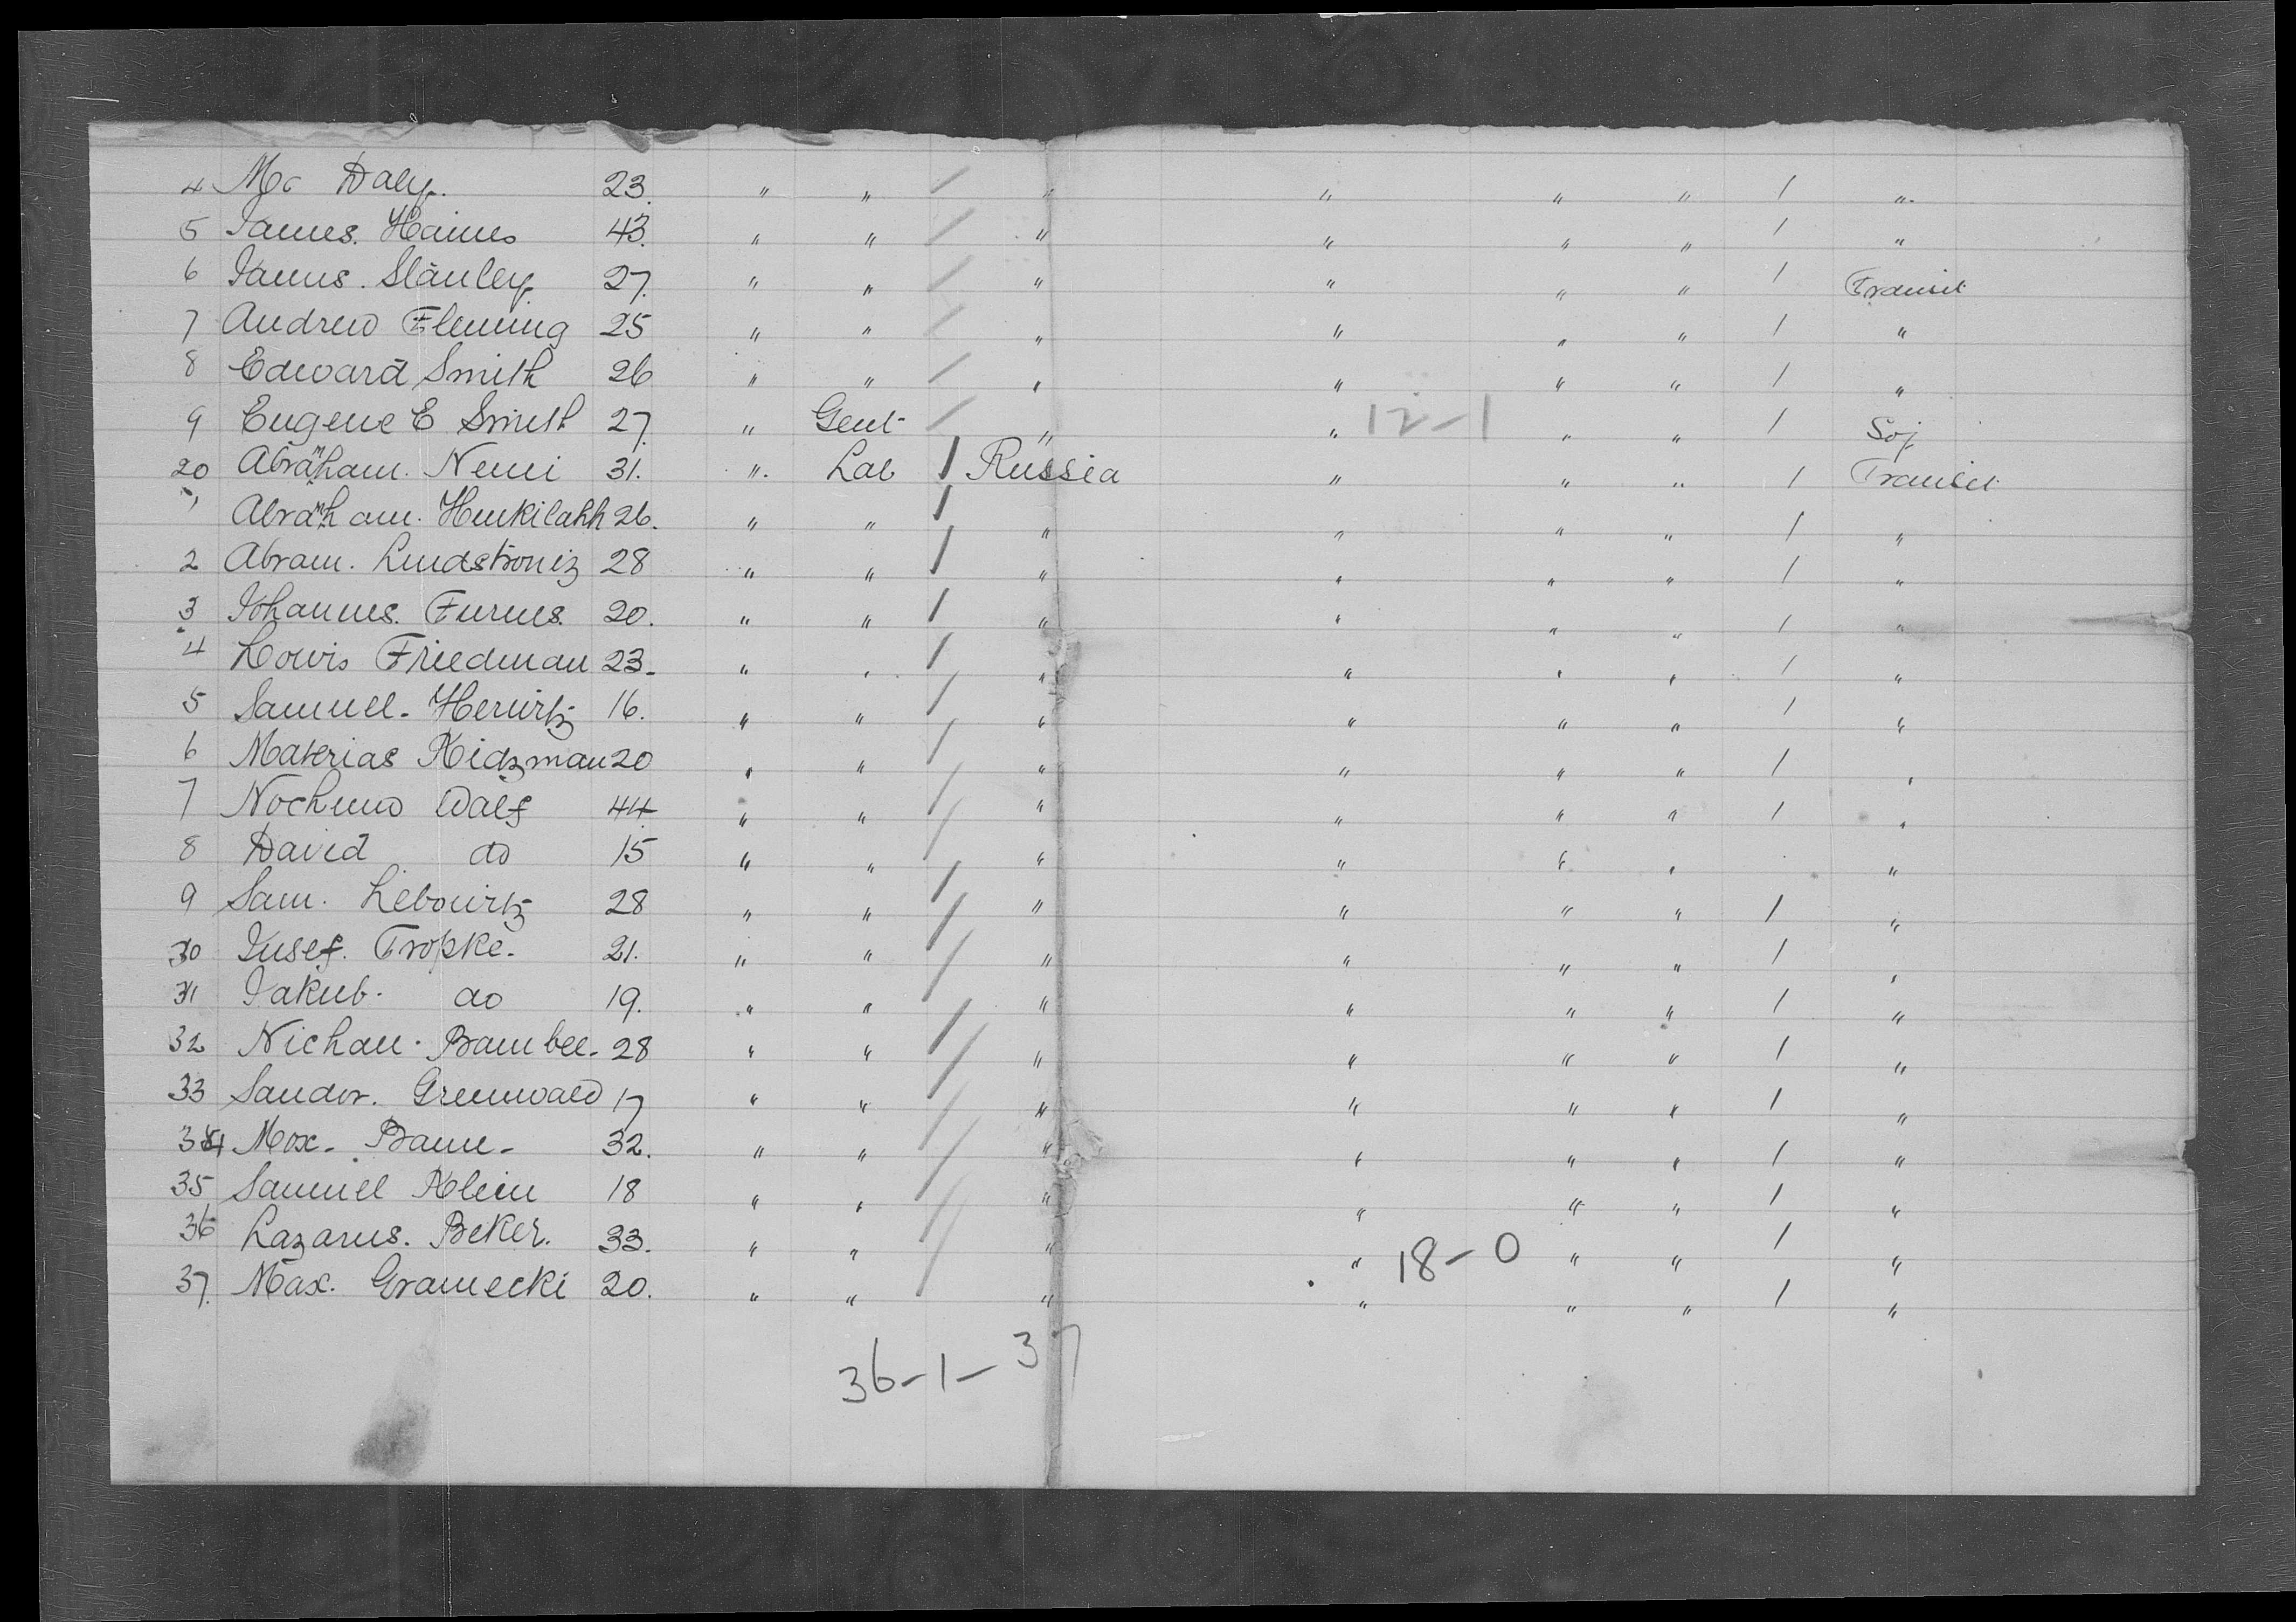 4 Mc Daly. 23. " " / " " " " / ".
5 James. Haines 43. " " / " " " " / "
6 James. Stanley. 27. " " / " " " " / Transit
7 Andrew Fleming 25 " " / " " " " / "
8 Edward Smith 26 " " / " " " " / "
9 Eugene E Smith 27. " Gent / " " 12-1 " " / Soj
20 Abraham. Nemi 31. " Lab / Russia " " " / Transit
1 Abraham. Henkilahh 26. " " / " " " " / "
2 Abram. Lindstroniz 28 " " / " " " " / "
3 Johannes. Furnes. 20. " " / " " " " / "
4 Lowis Friedman 23. " " / " " " " / "
5 Samuel. Herwitz 16. " " / " " " " / "
6 Materias Kidzman 20 " " / " " " " / "
7 Nochumo Walf 44 " " / " " " " / "
8 David do 15 " " / " " " " "
9 Sam. Lebowitz 28 " " / " " " " / "
30 Jusef. Tropke. 21. " " / " " " " / "
31 Jakub. do 19. " " / " " " " / "
32 Nichan. Bambee. 28 " " / " " " " / "
33 Sandor. Grenwald 17 " " / " " " " / "
34 Mox. Baum. 32. " " / " " " " / "
35 Samuel Klein 18 " " / " " " " / "
36 Lazarus. Beker. 33. " " / " " 18-0 " " / "
37. Max. Gramecki 20. " " / " " " " / "
36-1-37